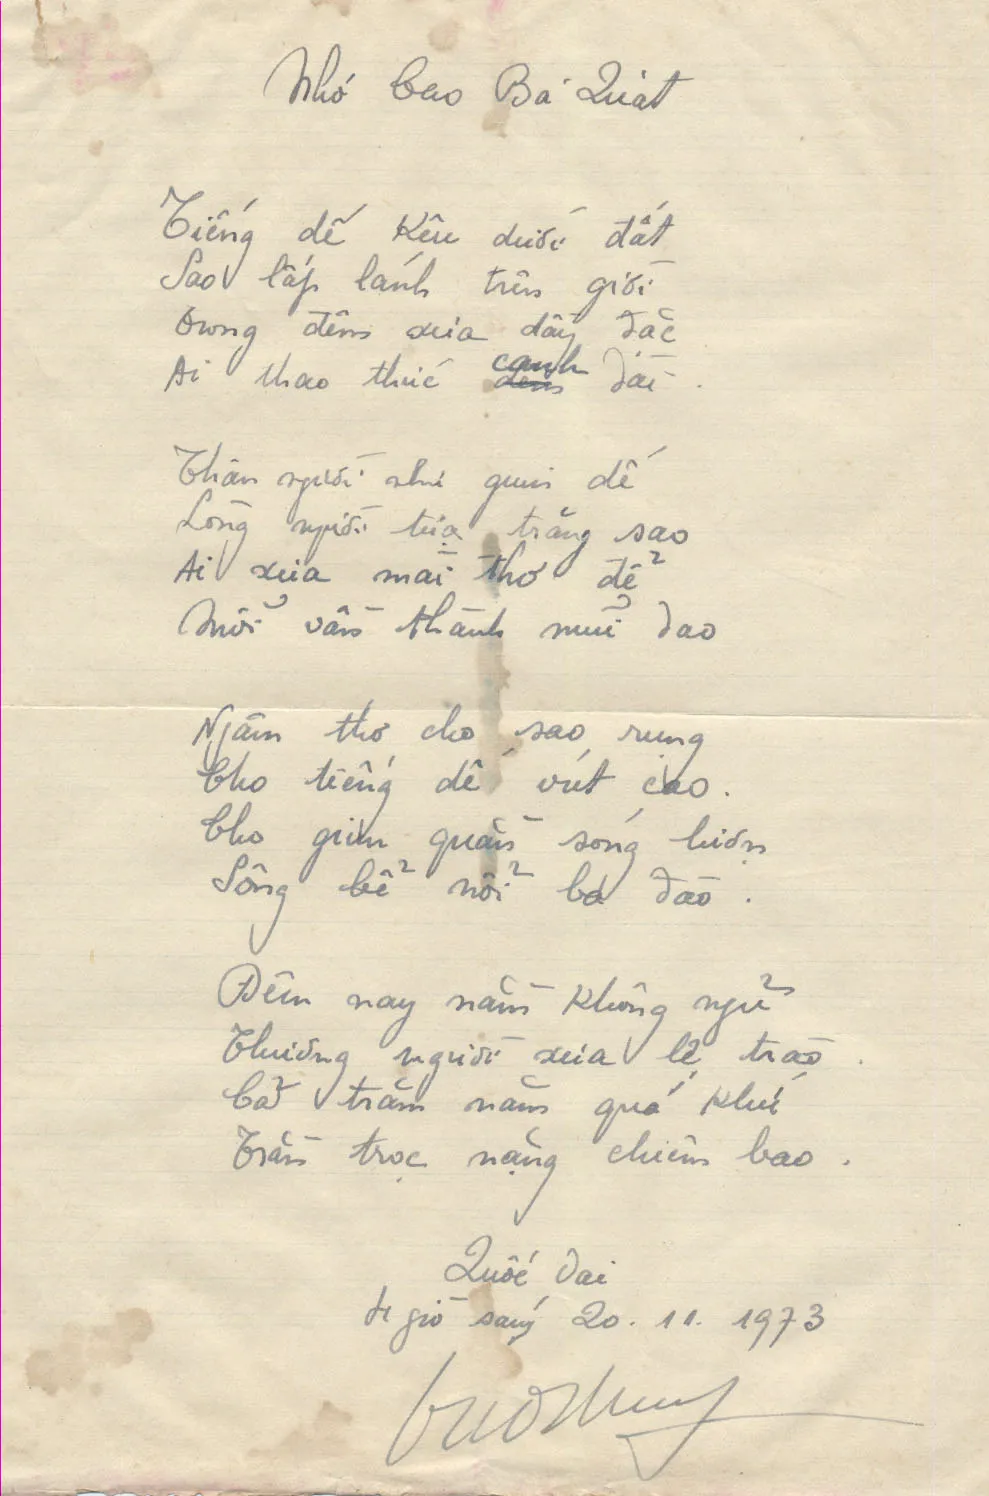 Nhớ Cao Bá Quát
Tiếng dế kêu dưới đất
Sao lấp lánh trên giời
Trong đêm xưa dầy đặc
Ai thao thức canh dài.
Thân người như giun dế
Lòng người tựa trăng sao
Ai xưa mài thơ để
Mỗi vần thành mũi dao
Ngâm thơ cho sao rụng
Cho tiếng dế vút cao.
Cho giun quằn sóng lượn
Sông bể nổi ba đào.
Đêm nay nằm không ngủ
Thương người xưa lệ trào.
Cả trăm năm quá khứ
Trằn trọc nặng chiêm bao.
Quốc Oai
giờ sáng 20.11.1973